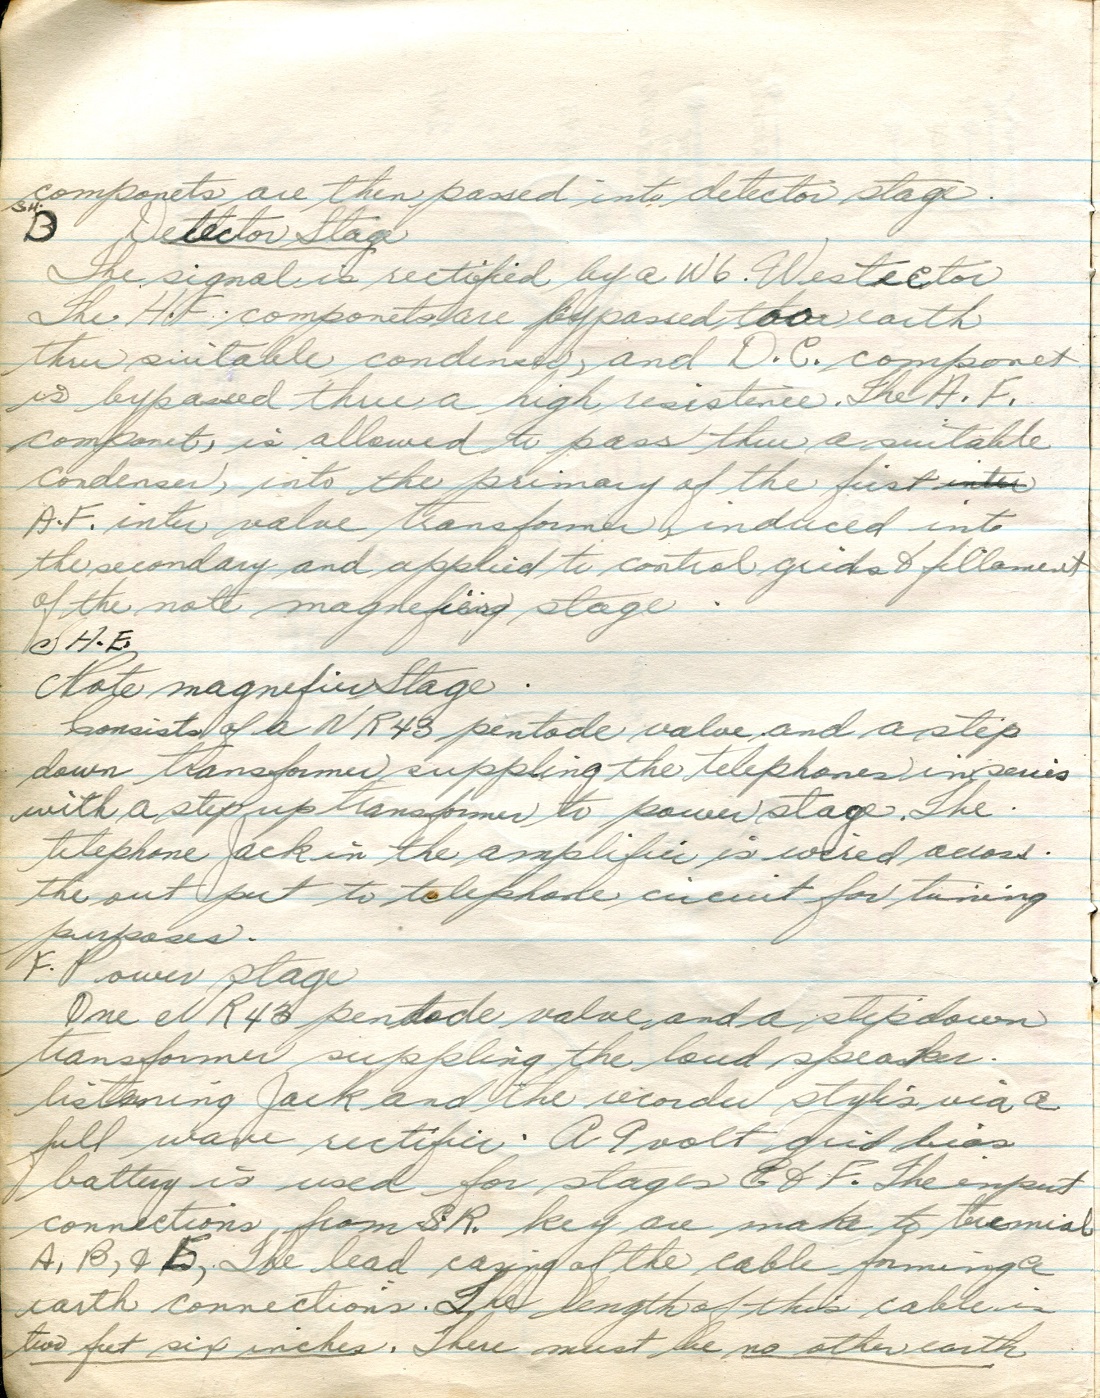 componets are then passed into detector stage.
SH.
D Detector Stage
The signal is rectified by a W6. Westector
The H.F. componets are bypassed to earth
thru suitable condenser, and D.C. componet
is bypassed thru a high resistence. The A.F.
componet, is allowed to pass thru a suitable
condenser, into the primary of the first inter
A.F. inter valve transformer, induced into
the secondary and applied to control grids & fillament
of the note magnefiing stage.
S H.E.
Note magnefier Stage.
Consists of a NR43 pentode valve and a step
down transformer suppling the telephones in series
with a step up transformer to power stage. The
telephone Jack in the amplifier is wired across.
the out put to telephone circuit for tuning
purposes.
F. Power stage
One NR43 pentode valve and a step down
transformer suppling the loud speaker.
listening Jack and the recorder stylis via a
full wave rectifier. A 9 volt grid bias
battery is used for stages E. & F. The input
connections, from S.R. key are make to termial
A, B, & E, The lead casing of the cable forming a
earth connections. The length of this cable is
two feet six inches. There must be no other earth